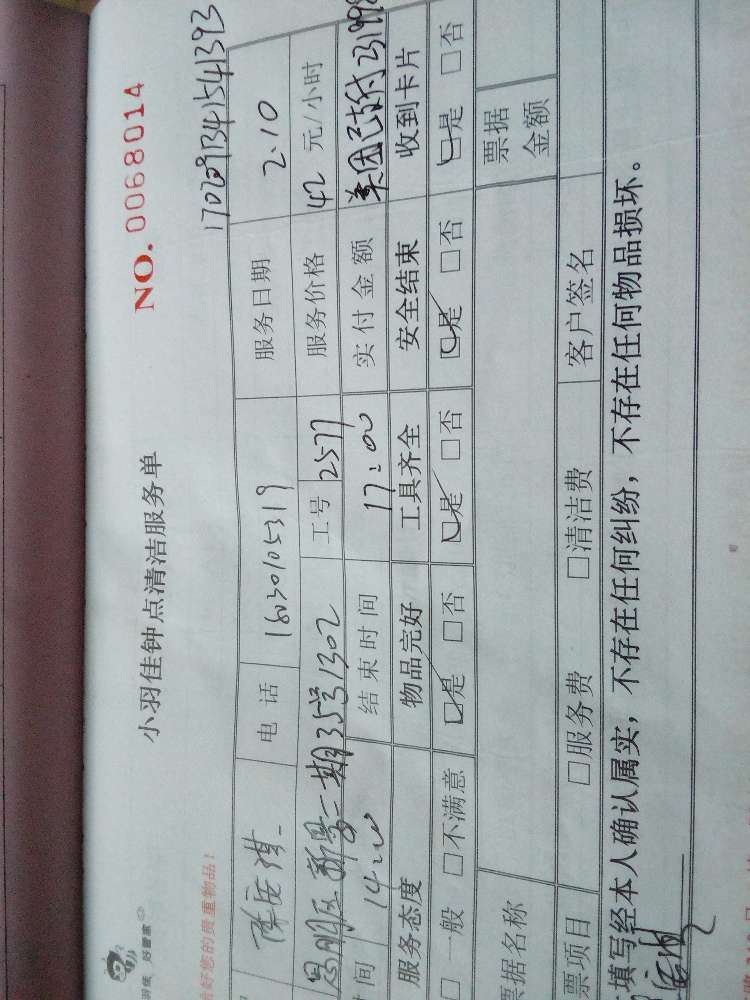 NO. 0068014
小羽佳钟点清洁服务单
管好您的贵重物品！
好管家
1702091341541393
电话 18030105319 服务日期 2.10
二期35号1302 工号 2577 服务价格 42 元/小时
间 14:00 结束时间 17:00 实付金额 美团已支付231998
服务态度 物品完好 工具齐全 安全结束 收到卡片
□一般 □不满意 □是 □否 □是 □否 □是 □否 □是 □否
据名称 票据金额
票项目 □服务费 □清洁费 客户签名
填写经本人确认属实，不存在任何纠纷，不存在任何物品损坏。